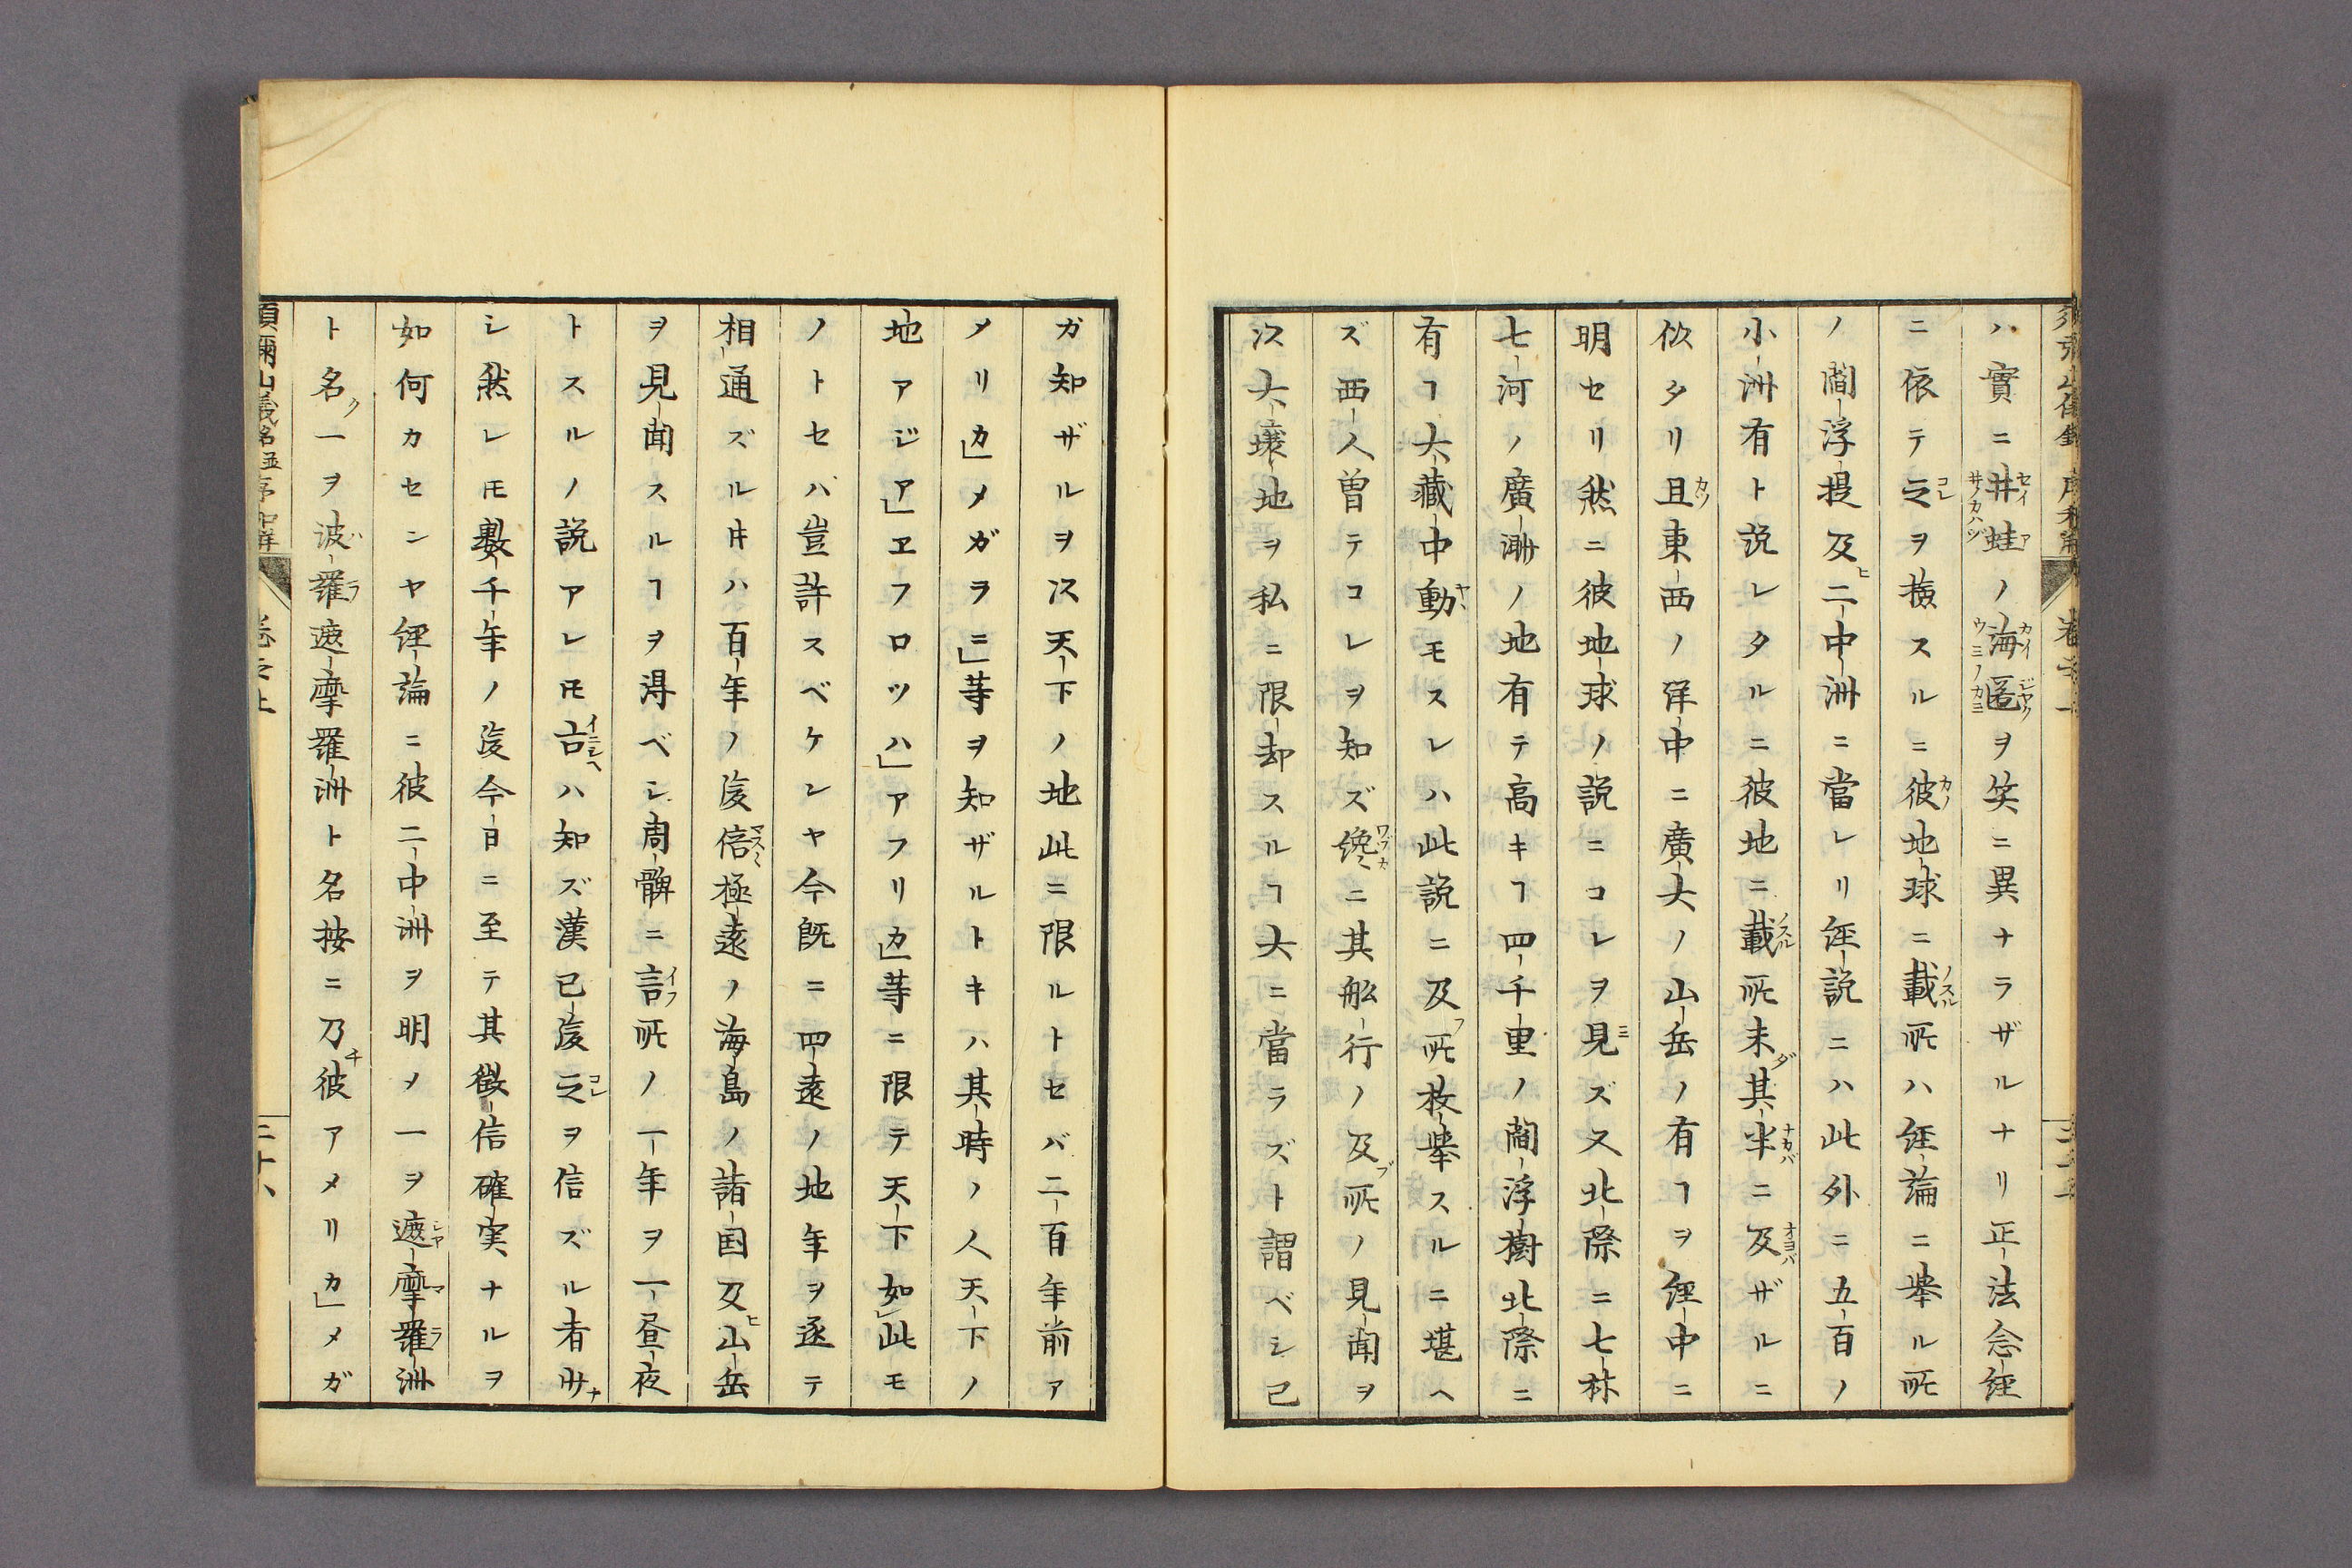 ハ實ニ井蛙ノ海匿ヲ笑ニ異ナラザルナリ正法念経
ニ依テ之ヲ撿スルニ彼地球ニ載所ハ経論ニ擧ル所
ノ閻浮提及ヒ二中洲ニ當レリ経説ニハ此外ニ五百ノ
小洲有ト説レタルニ彼地ニ載所未ダ其半ニ及ザルニ
似タリ且東西ノ洋中ニ廣大ノ山岳ノ有ヿヲ経中ニ
明セリ然ニ彼地球ノ説ニコレヲ見ズ又北際ニ七林
七河ノ廣渺ノ地有テ高キヿ四千里ノ閻浮樹北際ニ
有ヿ大藏中動モスレハ此説ニ及フ所枚擧スルニ堪ヘ
ズ西人曽テコレヲ知ズ纔ニ其舩行ノ及ブ所ノ見聞ヲ
以大壌地ヲ私ニ限却スルヿ大ニ當ラズト謂ベシ己
ガ知ザルヲ以天下ノ地此ニ限ルトセバ二百年前ア
メリカメガラニ等ヲ知ザルトキハ其時ノ人天下ノ
地アジアヱフロツハアフリカ等ニ限テ天下如此モ
ノトセハ豈許スベケンヤ今既ニ四遠ノ地年ヲ逐テ
相通ズル片ハ百年ノ後倍極遠ノ海島ノ諸国及ヒ山岳
ヲ見聞スルヿヲ得ベシ周髀ニ言所ノ一年ヲ一昼夜
トスルノ説アレ𪜈古ハ知ズ漢已後之ヲ信ズル者サナ
シ然レ𪜈數千年ノ後今日ニ至テ其徴信確実ナルヲ
如何カセンヤ経論ニ彼二中洲ヲ明メ一ヲ遮摩羅洲
ト名ク一ヲ波羅遮摩羅洲ト名按ニ乃チ彼アメリカメガ
須彌山儀銘並序和解 卷之上 二十八